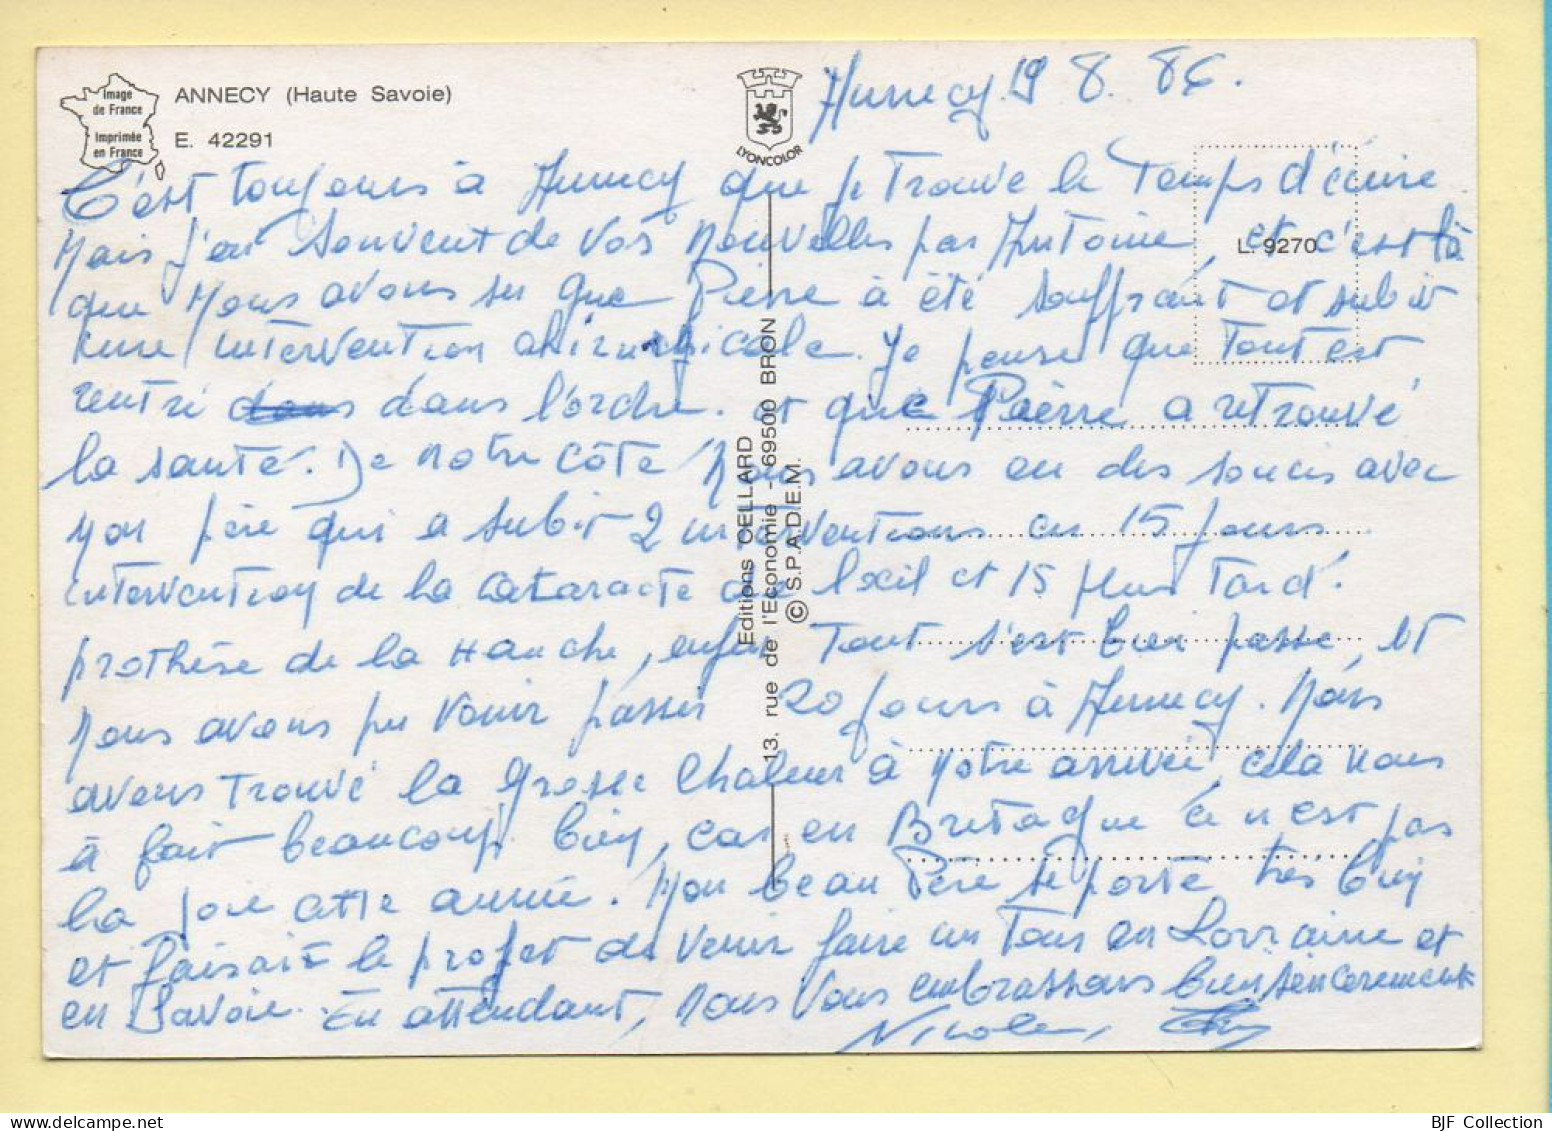 Image
de France
Imprimée
en France
ANNECY (Haute Savoie)
E. 42291
LYONCOLOR
L. 9270
Editions CELLARD
13, rue de l'Economie - 69500 BRON
© S.P.A.D.E.M.
Annecy 19 8. 86.
C'est toujours à Annecy que je trouve le temps d'écrire
Mais j'ai souvent de vos nouvelles par Antoine, et c'est là
que nous avons su que Pierre à été souffrant et subir
une intervention chirurgicale. Je pense que tout est
rentré dans dans l'ordre. et que Pierre a retrouvé
la santé. De notre côté nous avons eu des soucis avec
mon père qui a subir 2 interventions en 15 jours
intervention de la cataracte de l'œil et 15 plus tard.
prothèse de la Hanche, enfin tout s'est bien passé, et
nous avons pu venir passer 20 jours à Annecy. Nous
avons trouvé la grosse chaleur à notre arrivée, cela nous
à fait beaucoup bien, car en Bretagne ce n'est pas
la joie cette année. Mon beau Père se porte très bien
et faisait le projet de venir faire un tour en Lorraine et
en Savoie. En attendant, nous vous embrassons bien sincerement
Nicole,
BJF Collection